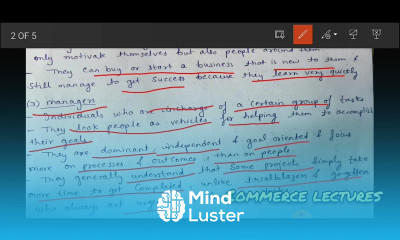 2 OF 5
only motivate themselves but also people around them
- They can buy or start a business that is new to them &
still manage to get success because they learn very quickly
managers
- Individuals who are incharge of a certain group of tasks
- They look people as vehicles for helping them to accomplish
their goals
- They are dominant, independent & goal oriented & focus
more on processes & outcomes than on people
- They generally understand that some projects simply take
more time to get completed, unlike trailblazers &
who always act
COMMERCE LECTURES
Mind
Luster